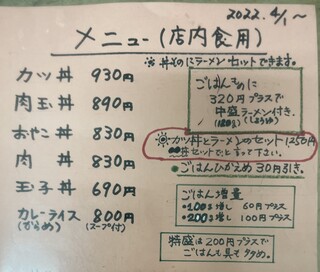 2022.4/1〜
メニュー(店内食用)
カツ丼 930円
肉玉丼 890円
おやこ丼 830円
肉丼 830円
玉子丼 690円
カレーライス 800円
(からめ) (スープ付)
※丼ものにラーメンセットできます。
ごはん少なめに
320円プラスで
中盛ラーメン付き。
(しょうゆ)
カツ丼とラーメンのセット1250円
丼セットで、と言って下さい。
・ごはんひかえめ30円引き。
ごはん増量
・100g増し 50円プラス
・200g増し 100円プラス
特盛は200円プラスで
ごはんも具も多め。